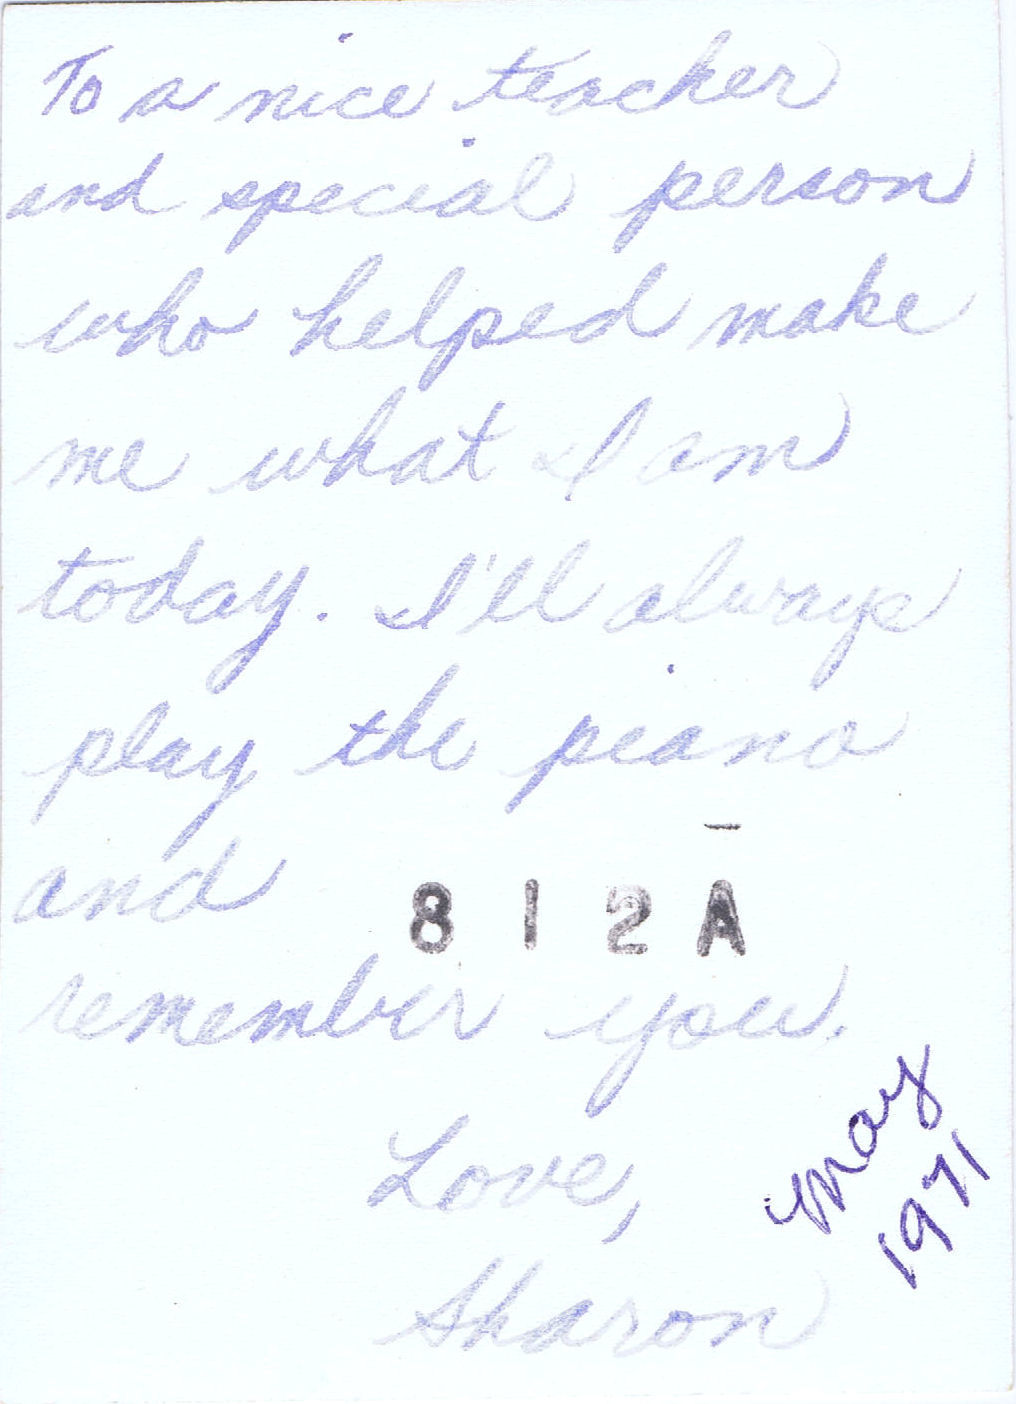 To a nice teacher
and special person
who helped make
me what I am
today. I'll always
play the piano
and
812A
remember you.
Love,
Sharon
May
1971